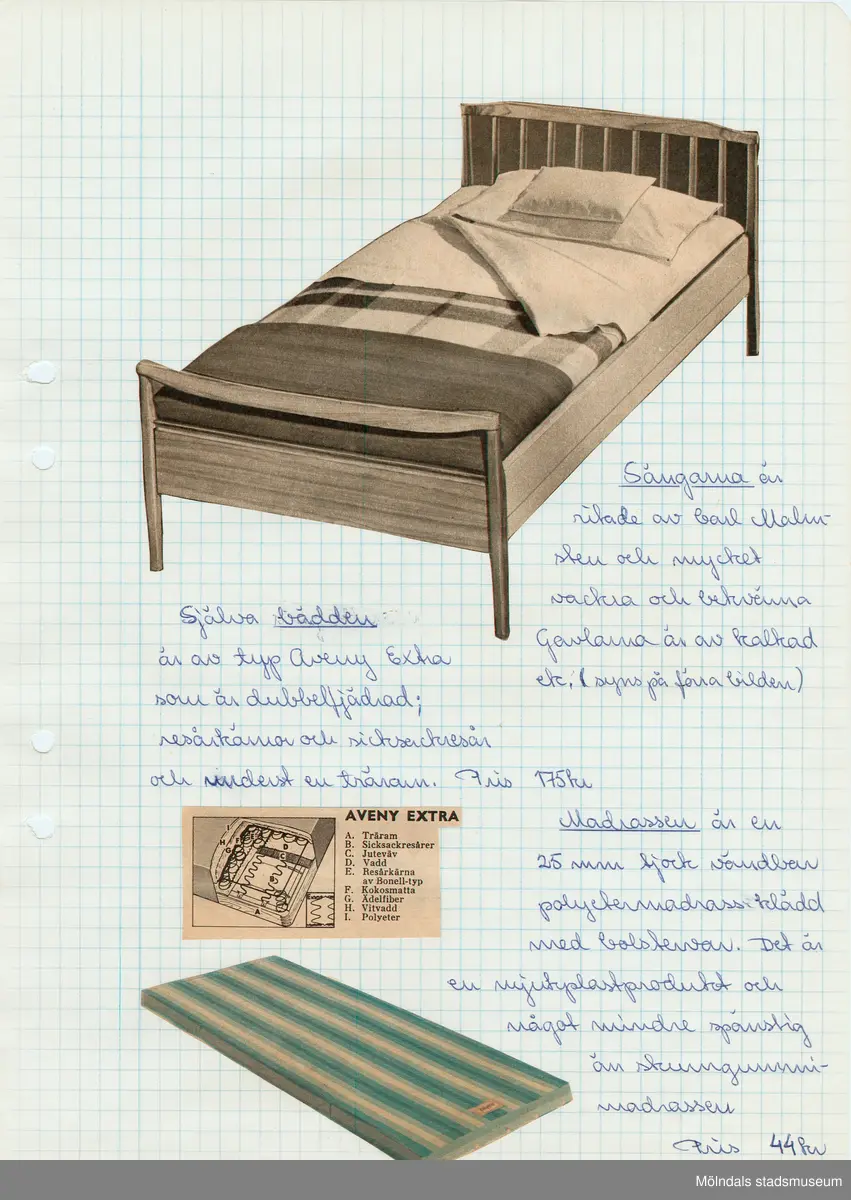 Sängarna är
ritade av Carl Malm-
sten och mycket
vackra och bekväma
Gavlarna är av kalkad
ek. (syns på förra bilden)
Själva bädden
är av typ Aveny Extra
som är dubbelfjädrad;
resårkärnor och sicksackresår
och underst en träram. Pris 175 kr
AVENY EXTRA
A. Träram
B. Sicksackresårer
C. Juteväv
D. Vadd
E. Resårkärna
av Bonell-typ
F. Kokosmatta
G. Ädelfiber
H. Vitvadd
I. Polyeter
Madrassen är en
25 mm tjock vändbar
polyetermadrass klädd
med bolstervar. Det är
en mjukplastprodukt och
något mindre spänstig
än skumgummi-
madrassen
Pris 44 kr
Mölndals stadsmuseum